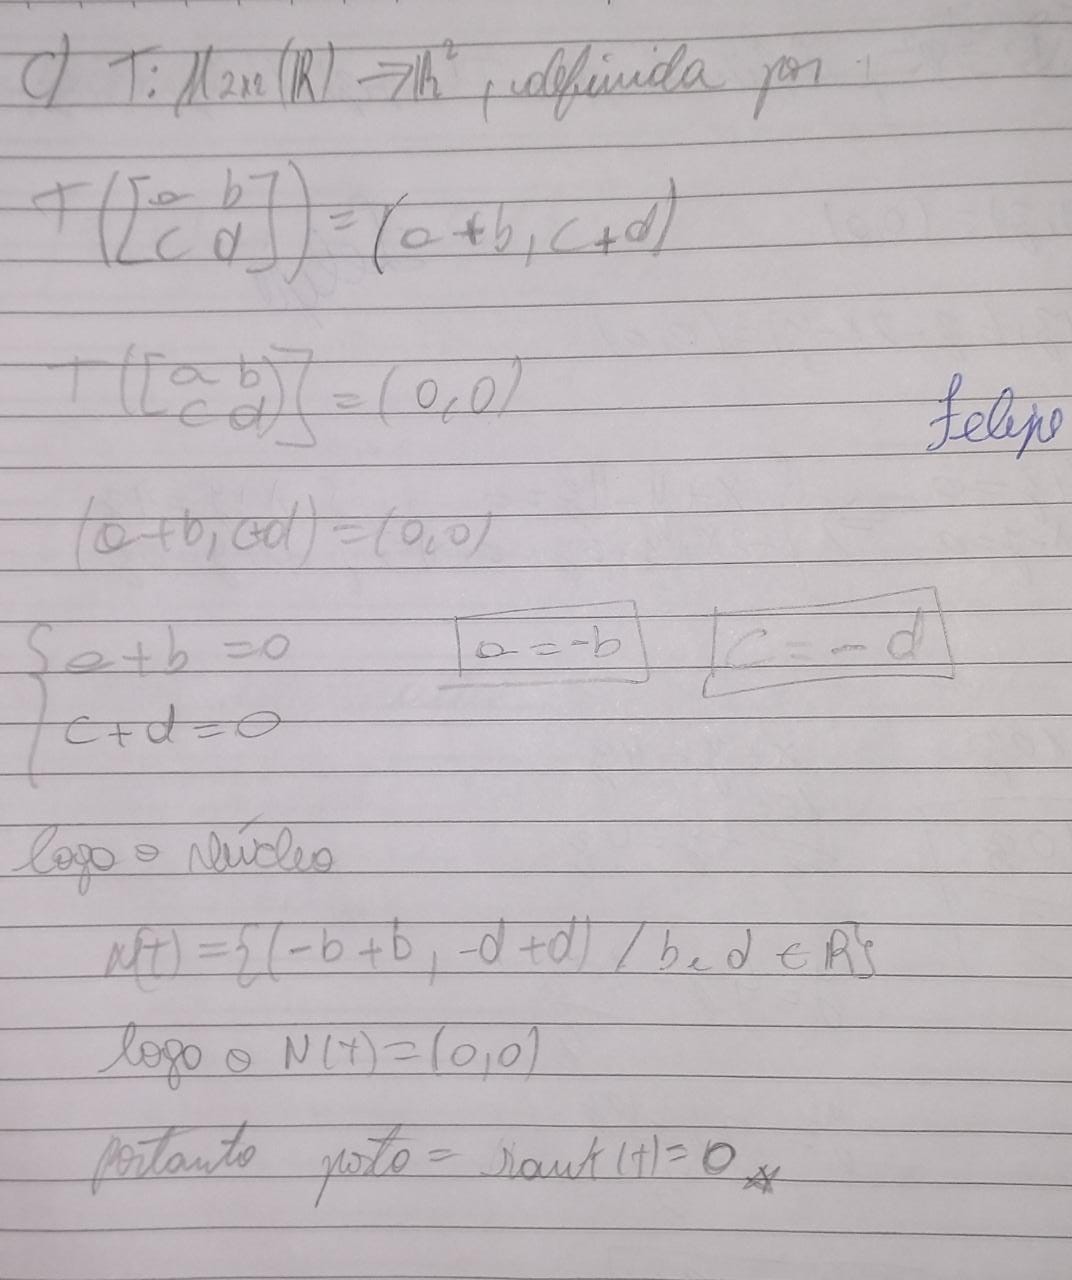 c) T: M2x2(R) → R², definida por
T([a b
c d]) = (a+b, c+d)
T([a b
c d)] = (0,0)
Felipe
(a+b, c+d) = (0,0)
{a+b=0 a=-b C=-d
c+d=0
logo o Núcleo
N(t) = {(-b+b, -d+d) / b e d ∈ R}
logo o N(t) = (0,0)
portanto posto = rank(t) = 0